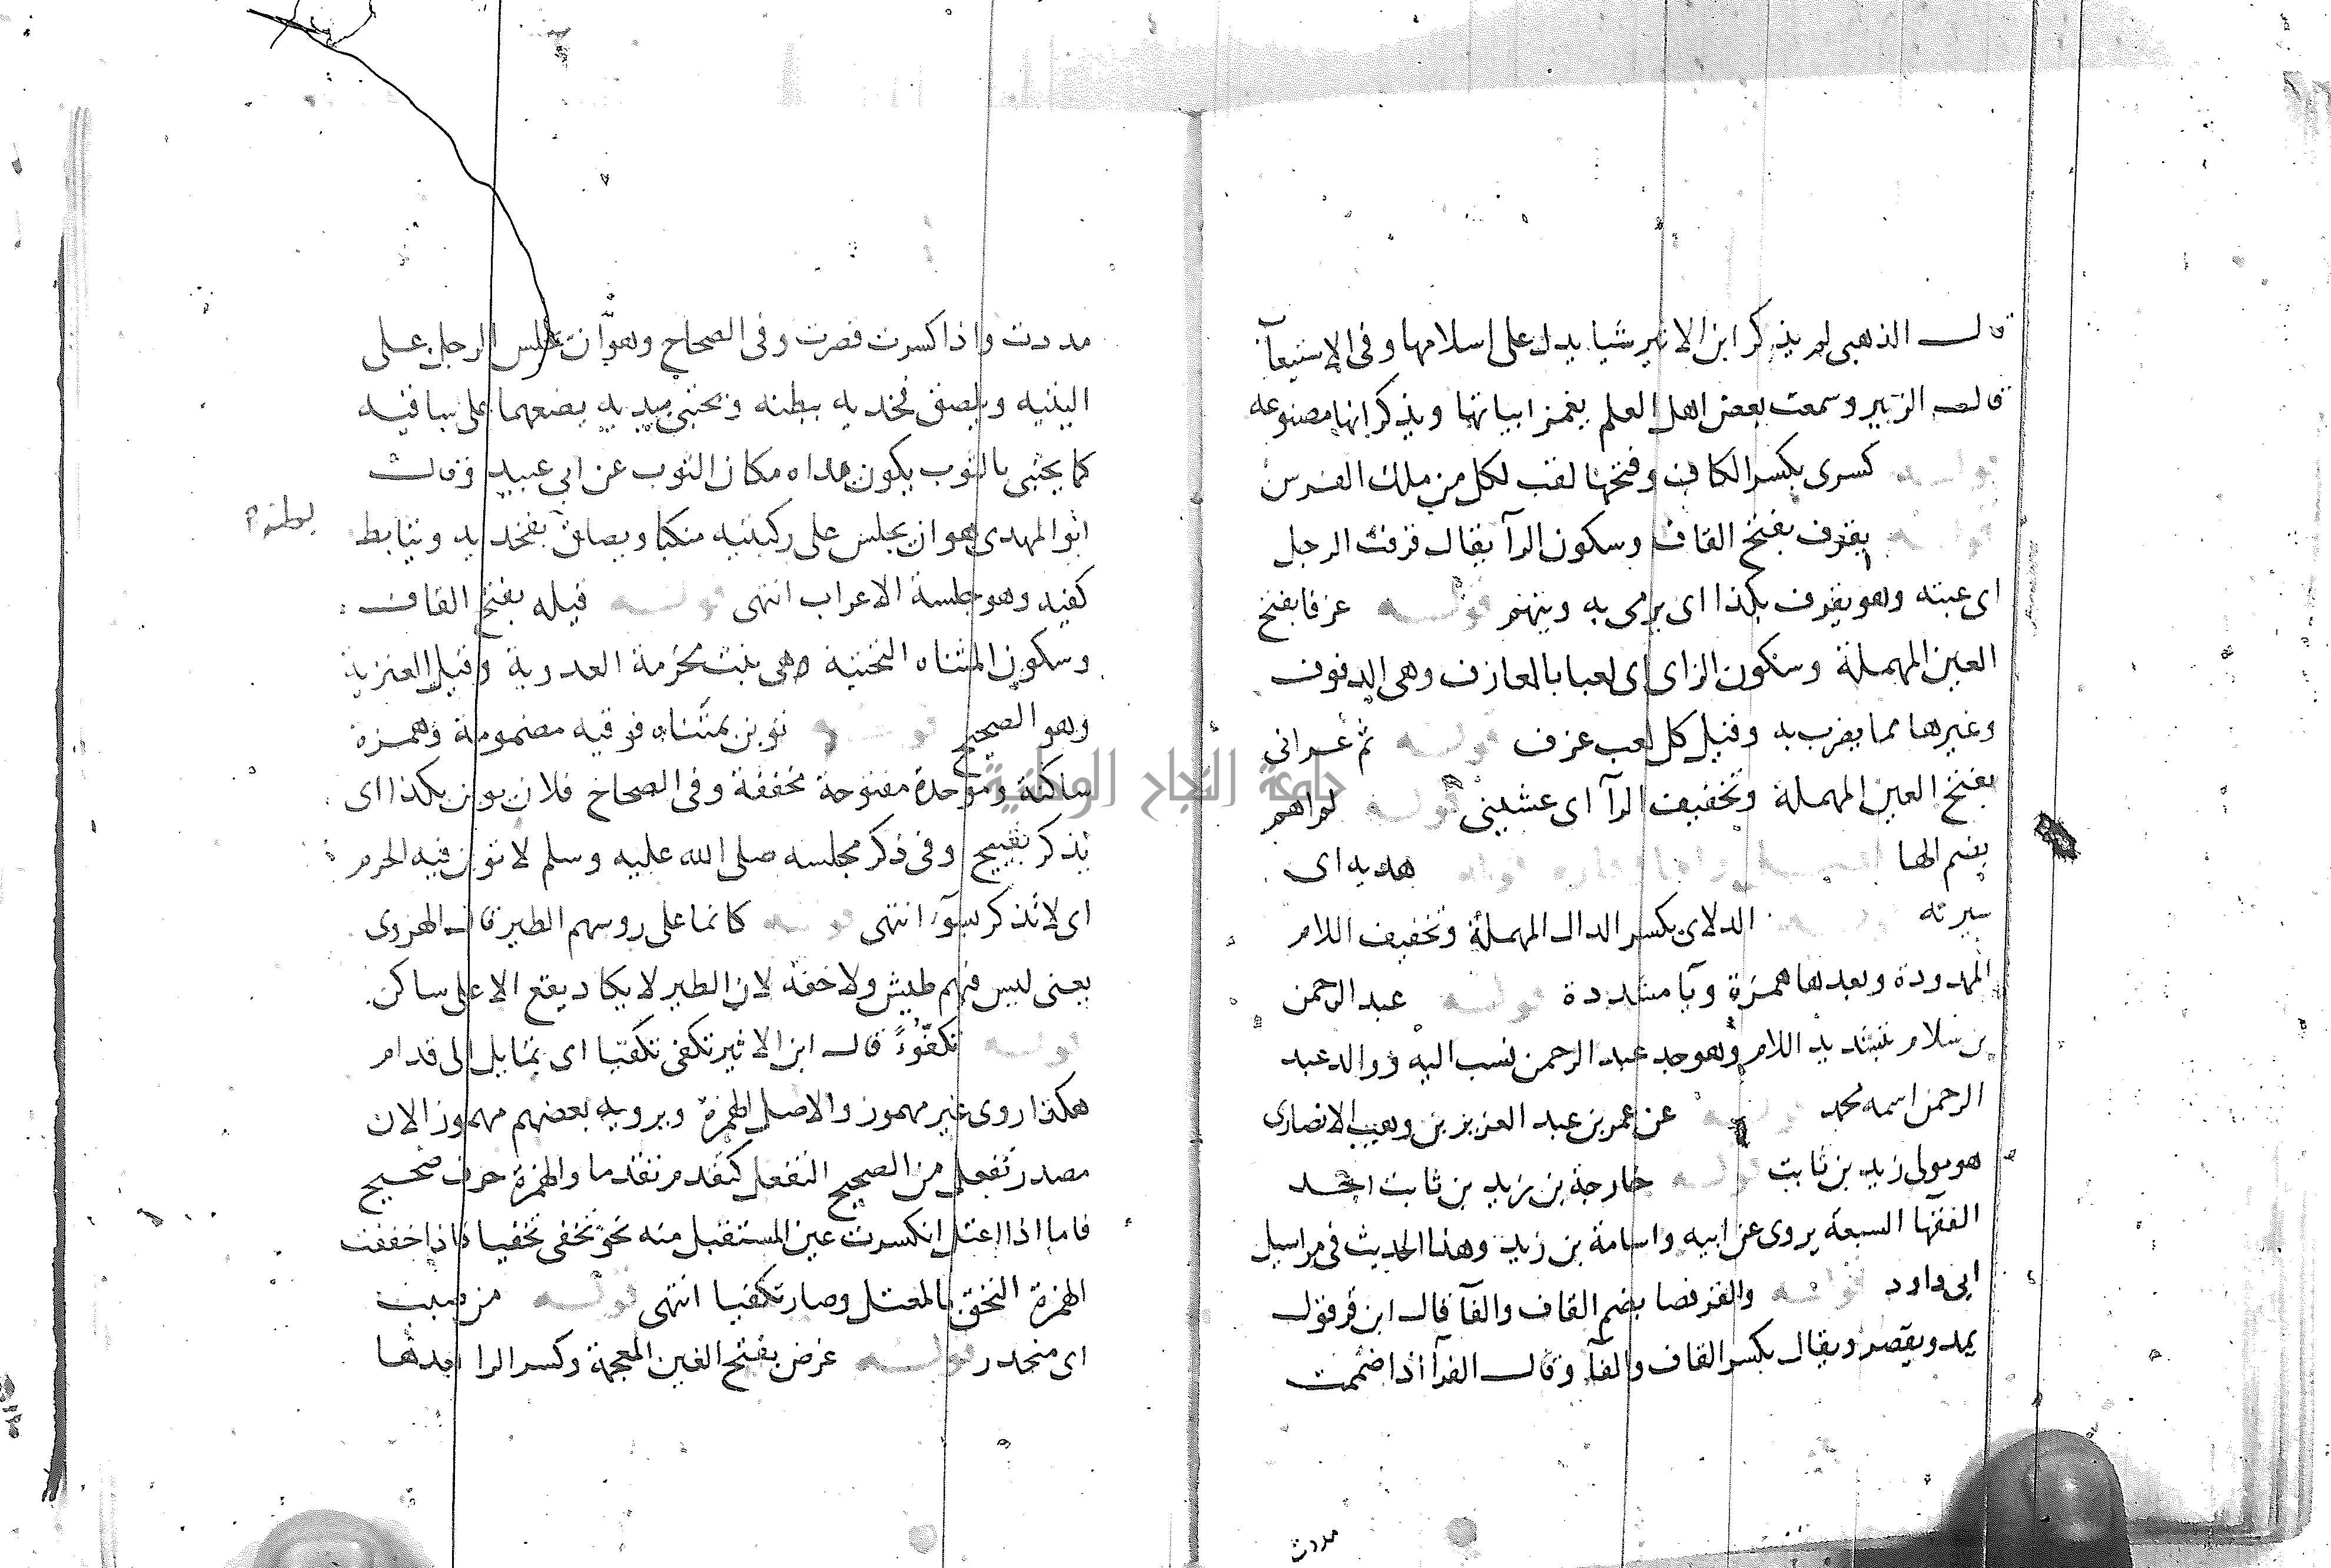 قال الذهبى لم يذكر ابن الاثير شيا يدل على اسلامها وفى الاستيعآ
قال الزبير وسمعت بعض اهل العلم يغمز ابياتها ويذكر انها مصنوعه
قوله كسرى بكسر الكاف وفتحها لقب لكل من ملك الفرس
قوله يقرف بفتح القاف وسكون الرآ يقال قرفت الرجل
اى عبته وهو يقرف بكذا اى يرمى به ويتهم قوله عزفا بفتح
العين المهملة وسكون الزاى اى لعبا بالمعازف وهى الدفوف
وغيرها مما يضرب به وقيل كل لعب عزف قوله ثم عرانى
بفتح العين المهملة وتخفيف الرآ اى غشينى قوله لم اهم
بضم الها قوله هديه اى
سيرته قوله الدلاى بكسر الدال المهملة وتخفيف اللام
المهدودة وبعدها همزة ويآ مشددة قوله عبد الرحمن
بن سلام بتشديد اللام وهو جد عبد الرحمن نسب اليه ووالد عبد
الرحمن اسمه محمد قوله عن عمر بن عبد العزيز بن وهيب الانصارى
هو مولى زيد بن ثابت قوله خارجة بن زيد بن ثابت احد
الفقها السبعة يروى عن ابيه واسامة بن زيد وهذا الحديث فى مراسيل
ابى داود قوله والقرفصا بضم القاف والفآ قال ابن قرقول
يمد ويقصر ويقال بكسر القاف والفآ وقال الفرآ اذا ضممت
مددت
مددت واذا كسرت قصرت وفى الصحاح وهو ان يجلس الرجل على
اليتيه ويلصق فخديه ببطنه ويحتبى بيديه يضعهما على ساقيه
كما يحتبى بالثوب يكون يداه مكان الثوب عن ابى عبيد وقال
ابو المهدى هو ان يجلس على ركبتيه منكبا ويصلق بفخديه ويتابط
بطنه
كفيه وهو جلسة الاعراب انتهى قوله قيله بفتح القاف
وسكون المثناه التحتية وهى بنت مخرمة العدوية وقيل العنزية
وهو الصحيح قوله توبن بمثناه فوقيه مضمومة وهمزة
ساكنة وموحدة مفتوحة مخففة وفى الصحاح فلان يوبن بكذا اى
يذكر بقبيح وفى ذكر مجلسه صلى الله عليه وسلم لا توبن فيه الحرم
اى لا تذكر بسوء انتهى قوله كانما على روسهم الطير قال الهروى
يعنى ليس فيهم طيش ولا خفة لان الطير لا يكاد يقع الا على ساكن
قوله تكفّؤءً قال ابن الاثير تكفى تكفيا اى يمايل الى قدام
هكذا روى غير مهموز والاصل الهمزة ويرويه بعضهم مهموز الان
مصدر تفعل من الصحيح التفعل كتقدم تقدما والهمزة حرف صحيح
فاما اذا اعتل انكسرت عين المستقبل منه نحو تخفى تخفيا فاذا خففت
الهمزة التحق بالمعتل وصار تكفيا انتهى قوله من صبب
اى منحدر قوله غرض بفتح الغين المعجمة وكسر الرا بعدها
جامعة النجاح الوطنية